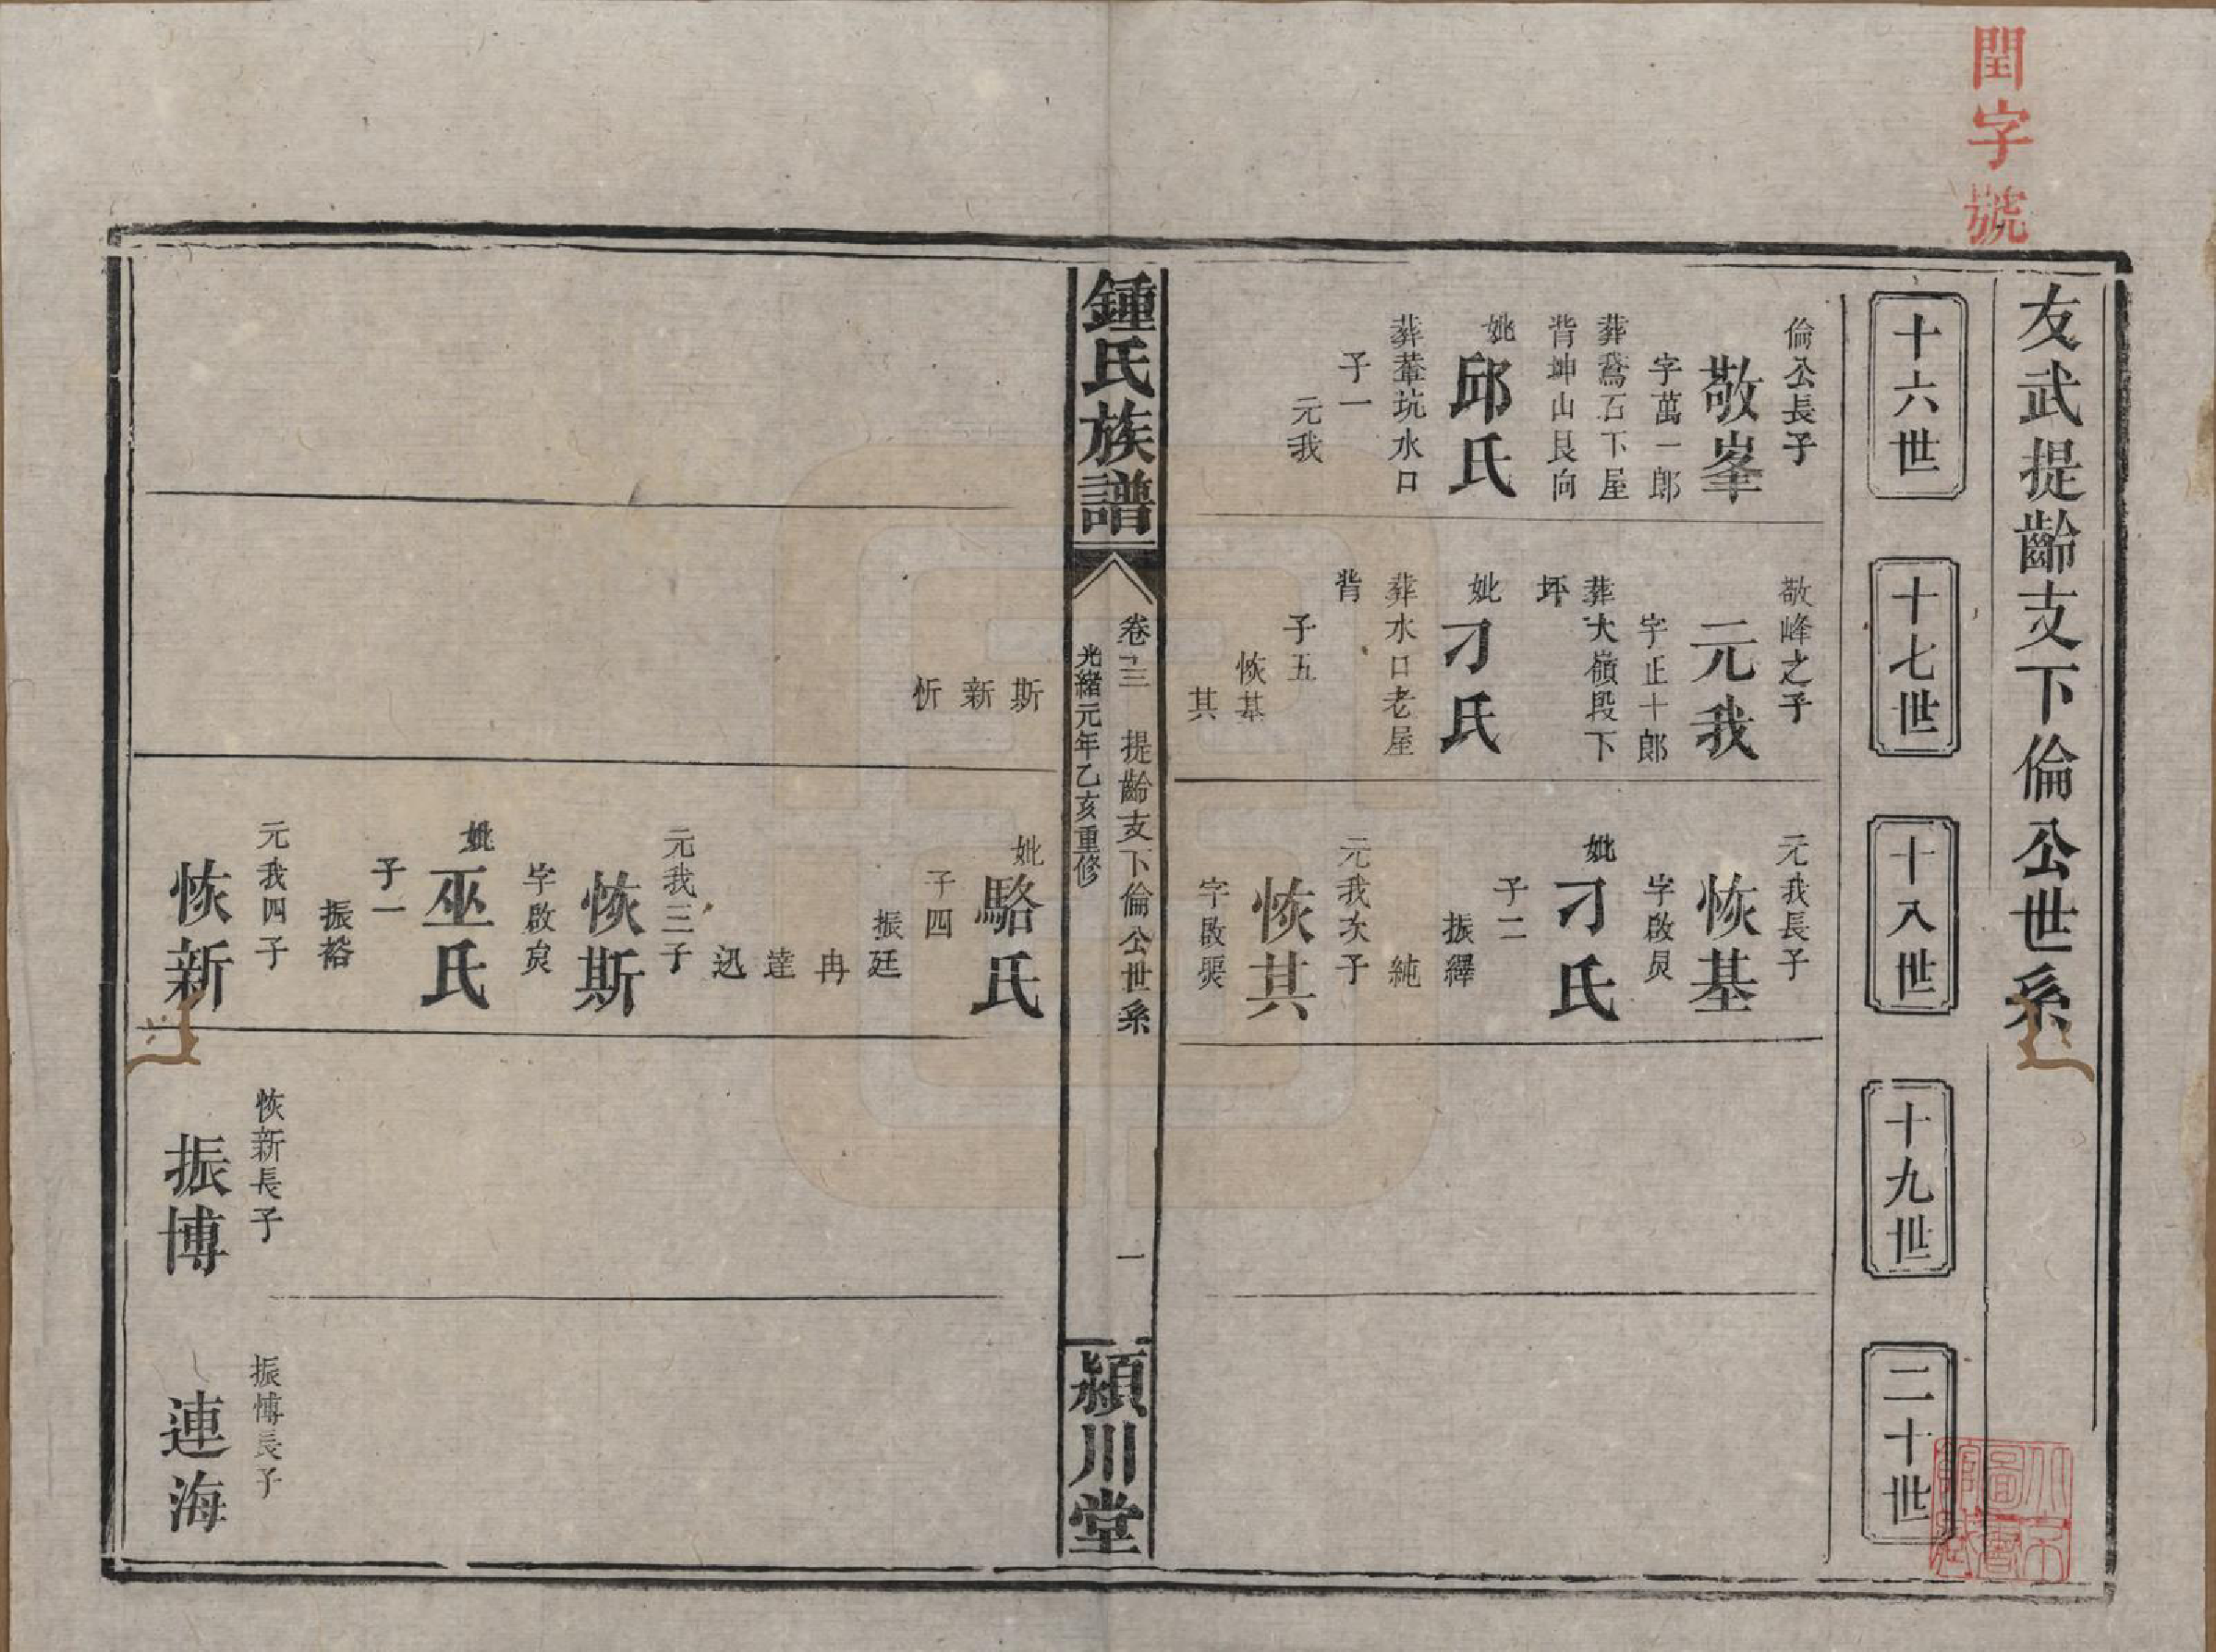 閏字號
友武提齡支下倫公世系
十六世
十七世
十八世
十九世
二十世
倫公長子
敬峯
字萬一郎
葬鵞石下屋
背坤山艮向
妣邱氏
葬輋坑水口
子一
元我
敬峰之子
元我
字正十郎
葬大嶺段下
坪
妣刁氏
葬水口老屋
背
子五
恢基
其
元我長子
恢基
字啟炅
妣刁氏
子二
振繹
純
元我次子
恢其
字啟
鍾氏族譜
卷三 提齡支下倫公世系
一
光緒元年乙亥重修
潁川堂
斯
新
忻
妣駱氏
子四
振廷
冉
達
迅
元我三子
恢斯
字啟
妣巫氏
子一
振裕
元我四子
恢新
恢新長子
振博
振博長子
連海
北京
圖書
館藏